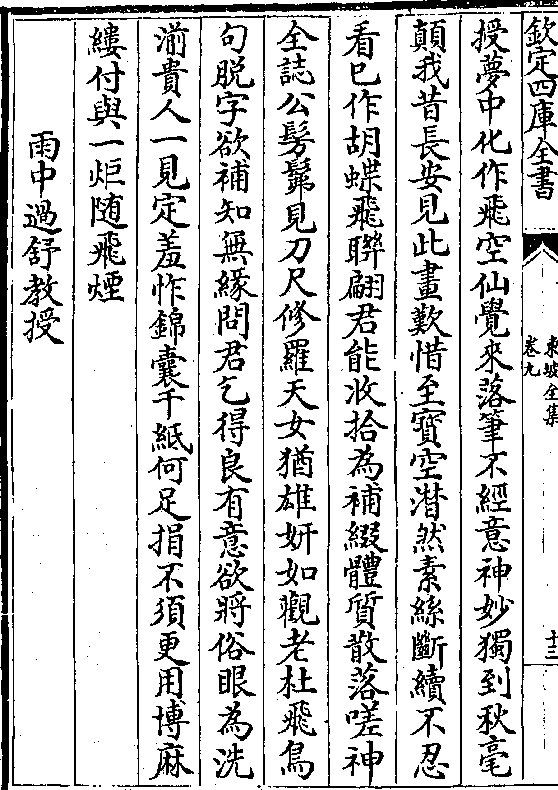 欽定四庫全書
東坡全集
卷九
十三
授夢中化作飛空仙覺來落筆不經意神妙獨到秋毫
顛我昔長安見此畫歎惜至寶空潸然素絲斷續不忍
看已作胡蝶飛聯翩君能收拾為補綴體質散落嗟神
全誌公髣髴見刀尺修羅天女猶雄妍如觀老杜飛鳥
句脱字欲補知無緣問君乞得良有意欲將俗眼為洗
湔貴人一見定羞怍錦囊千紙何足捐不須更用博麻
縷付與一炬随飛煙
雨中過舒教授